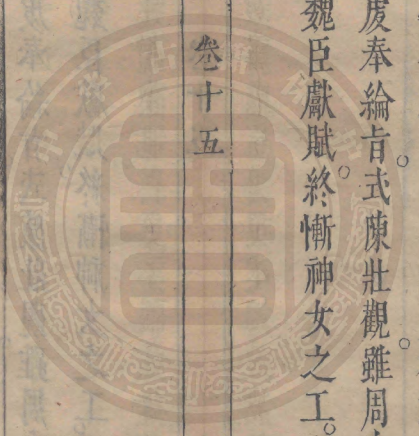 虔奉綸旨式陳壯觀。雖周
魏臣獻賦。終慚神女之工。
卷十五